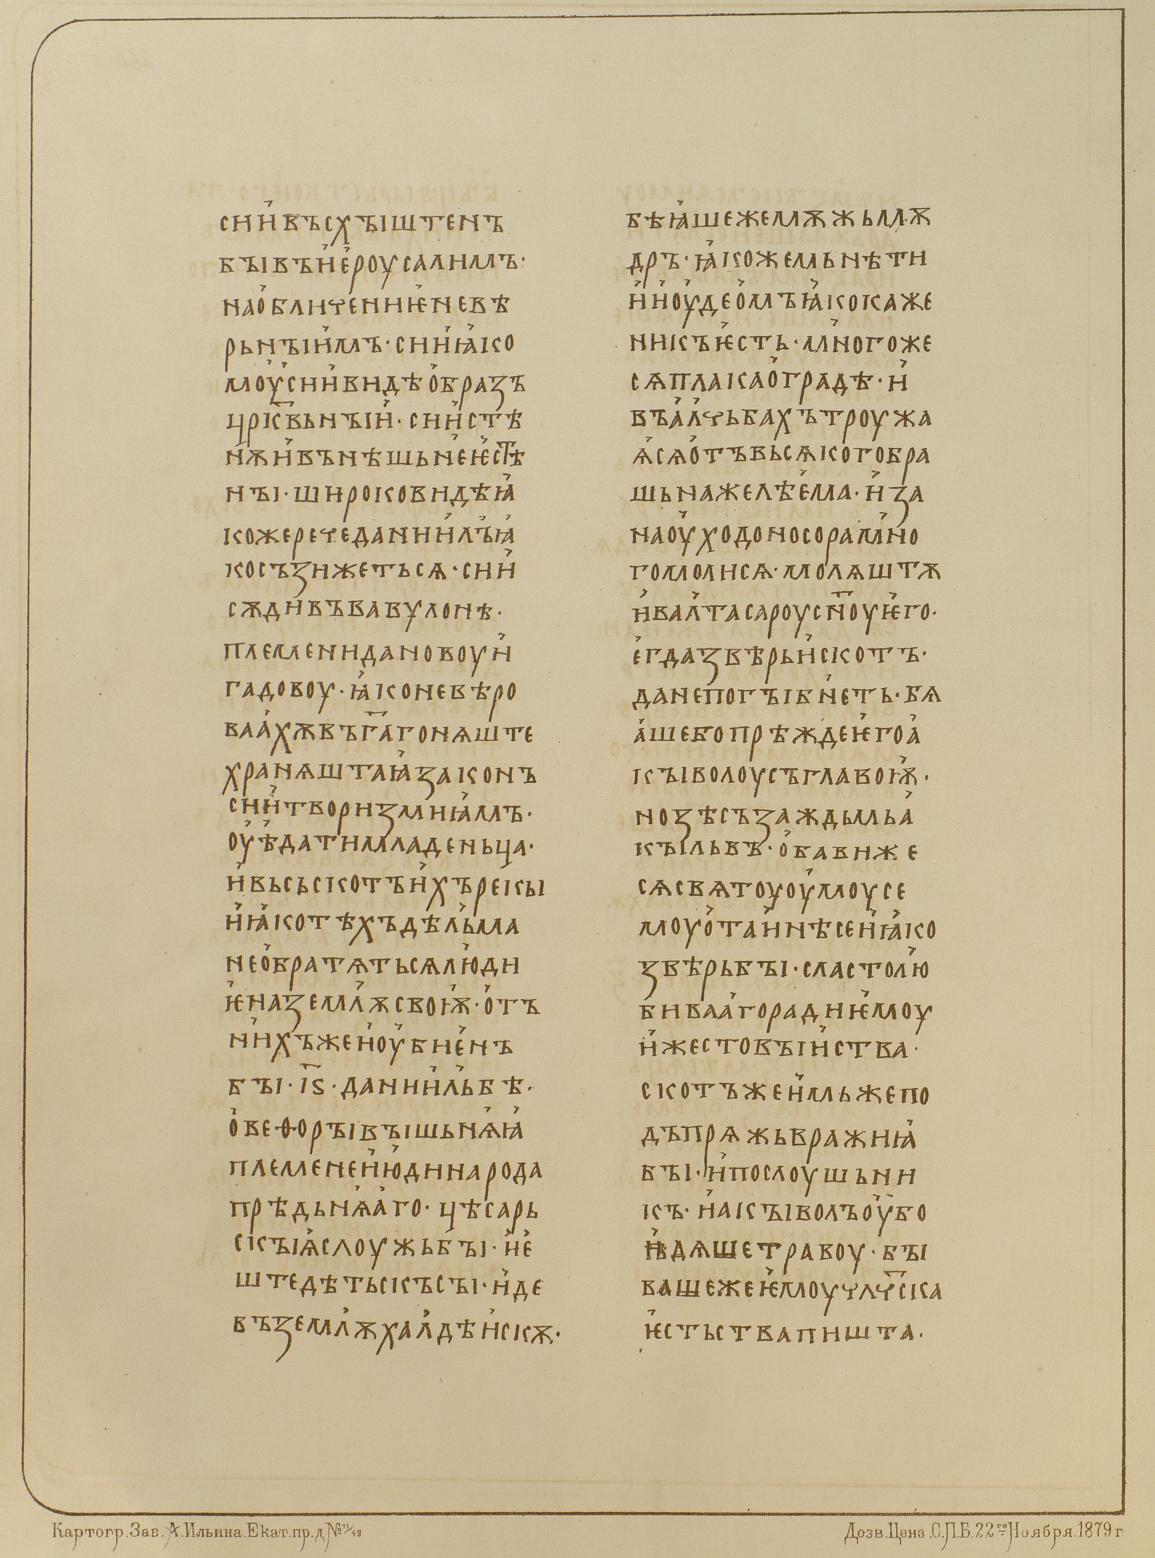 сии въсхꙑштенъ
бꙑвъ иероусалимъ·
на обличение невѣ
рьнꙑимъ· сии ꙗко
моусии видѣ образъ
црк҃вьнꙑи· сии стѣ
нѫ ивъ нѣшьнее ѥстѣ
нꙑ· широко видѣ ꙗ
коже рече даниилъ ꙗ
ко съзижетьсѧ· сии
сѫдивъ вавулонѣ·
племени дановоу и
гадовоу· ꙗко невѣро
ваахѫ въ г҃а гонѧште
хранѧштаꙗ законъ
сии твори змиꙗмъ·
оуѣдати младеньца·
и вьсь скотъ ихъ рекꙑ
и ꙗко тѣхъ дѣльма
не обратѧтьсѧ люди
ѥ на землѭ своѭ· отъ
нихъже и оубиенъ
бꙑ· ꙇ҃ѕ· даниилъ бѣ·
о веѳорꙑ вꙑшьнѧꙗ
племене июдина рода
прѣдьнѧаго· цѣсарь
скꙑѩ слоужьбꙑ· и е
ште дѣтьскъ сꙑ· иде
въ землѭ халдѣискѫ·
бѣꙗше же мѫжь мѫ
дръ· ꙗкоже мьнѣти
и иоудеомъ ꙗко каже
никъ ѥсть· много же
сѧ плака о градѣ· и
въ алчьбахъ троужа
ѧсѧ отъ вьсѧкого бра
шьна желѣема· и за
наоуходоносора мно
го молисѧ· молѧштѫ
и валтасароу сн҃оу ѥго·
егда звѣрь и скотъ·
да не погꙑбнеть· бѧ
аше бо прѣждеѥго а
кꙑ волоу съ главоѭ·
нозѣ съ заждьмь а
кꙑ львъ· обави же
сѧ свѧтоуоумоу се
моу о таинѣ сеи ꙗко
звѣрь бꙑ· сластолю
бива а горадиѥмоу
и жестовꙑиства·
скотъже имьже по
дъпрѧжь вражиꙗ
бꙑ· и послоушьни
къ· и акꙑ волъ оубо
ꙗдѧше травоу· бꙑ
ваше же ѥмоу чл҃чска
ѥстьства пишта·
Картогр. Зав. А. Ильина. Екат. пр. д. № 11/43
Дозв. Ценз. С.П.Б. 22го Ноября. 1879 г.